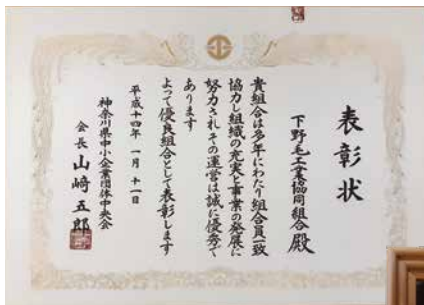 表彰状
下野毛工業協同組合殿
貴組合は多年にわたり組合員一致
協力し組織の充実と事業の発展に
努力されその運営は誠に優秀で
あります
よって優良組合として表彰します
平成十四年一月十一日
神奈川県中小企業団体中央会
会長山﨑五郎